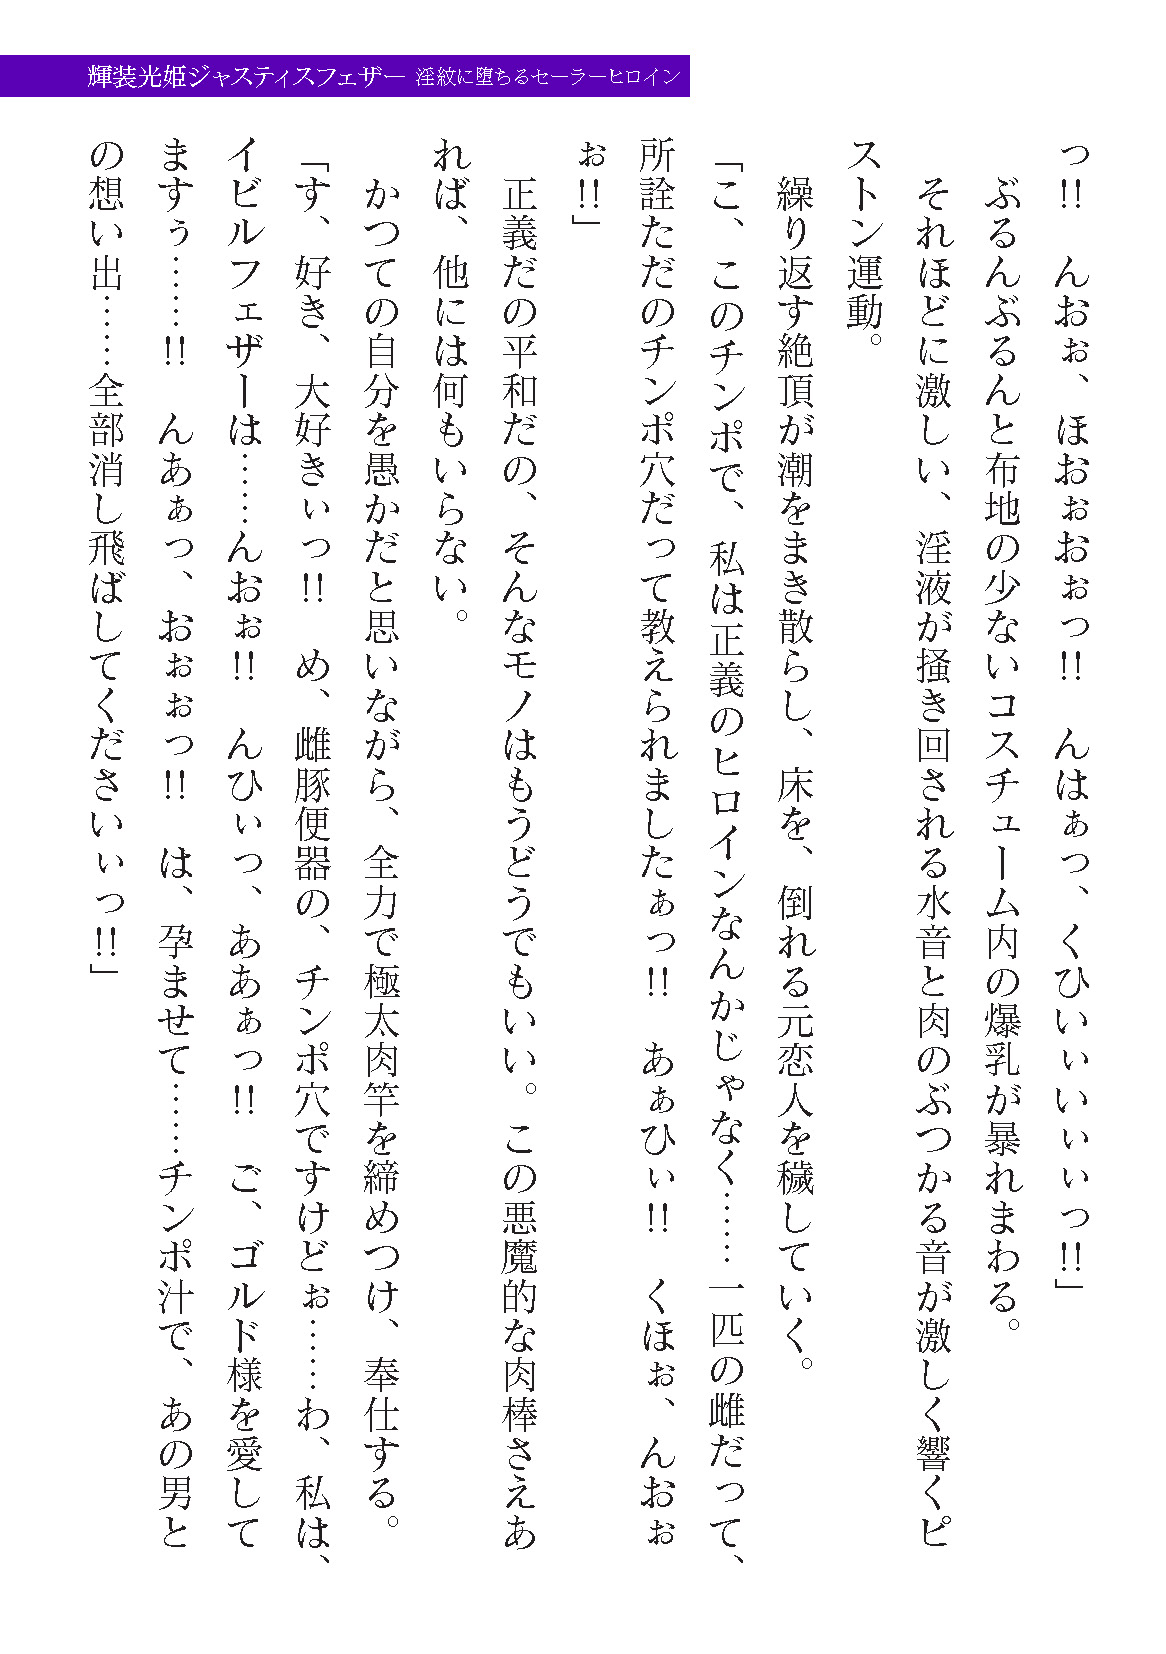 輝装光姫ジャスティスフェザー 淫紋に堕ちるセーラーヒロイン
っ!! んおぉ、ほおぉおぉっ!! んはぁっ、くひいぃいぃぃっ!!」
ぶるんぶるんと布地の少ないコスチューム内の爆乳が暴れまわる。
それほどに激しい、淫液が掻き回される水音と肉のぶつかる音が激しく響くピ
ストン運動。
繰り返す絶頂が潮をまき散らし、床を、倒れる元恋人を穢していく。
「こ、このチンポで、私は正義のヒロインなんかじゃなく……一匹の雌だって、
所詮ただのチンポ穴だって教えられましたぁっ!! あぁひぃ!! くほぉ、んおぉ
ぉ!!」
正義だの平和だの、そんなモノはもうどうでもいい。この悪魔的な肉棒さえあ
れば、他には何もいらない。
かつての自分を愚かだと思いながら、全力で極太肉竿を締めつけ、奉仕する。
「す、好き、大好きぃっ!! め、雌豚便器の、チンポ穴ですけどぉ……わ、私は、
イビルフェザーは……んおぉ!! んひぃっ、ああぁっ!! ご、ゴルド様を愛して
ますぅ……!! んあぁっ、おぉぉっ!! は、孕ませて……チンポ汁で、あの男と
の想い出……全部消し飛ばしてくださいぃっ!!」